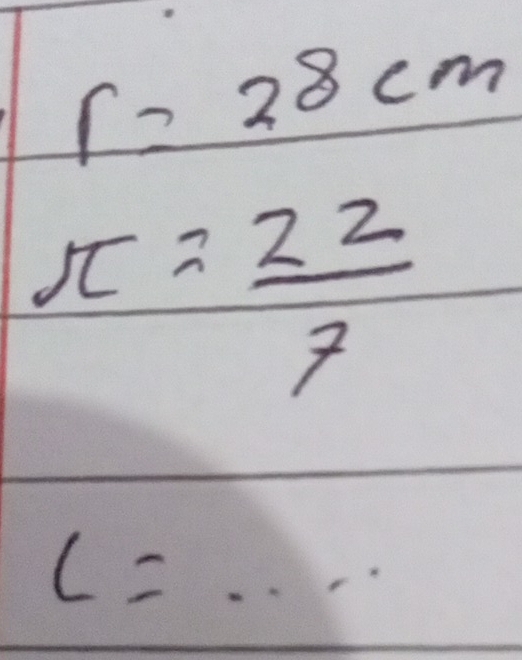 r = 28 cm
π = 22
7
C = ....